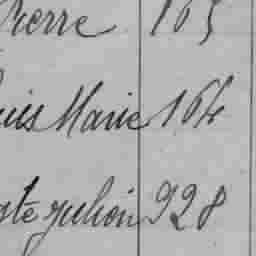 Pierre 165
uis Marie 164
ste Julien 928